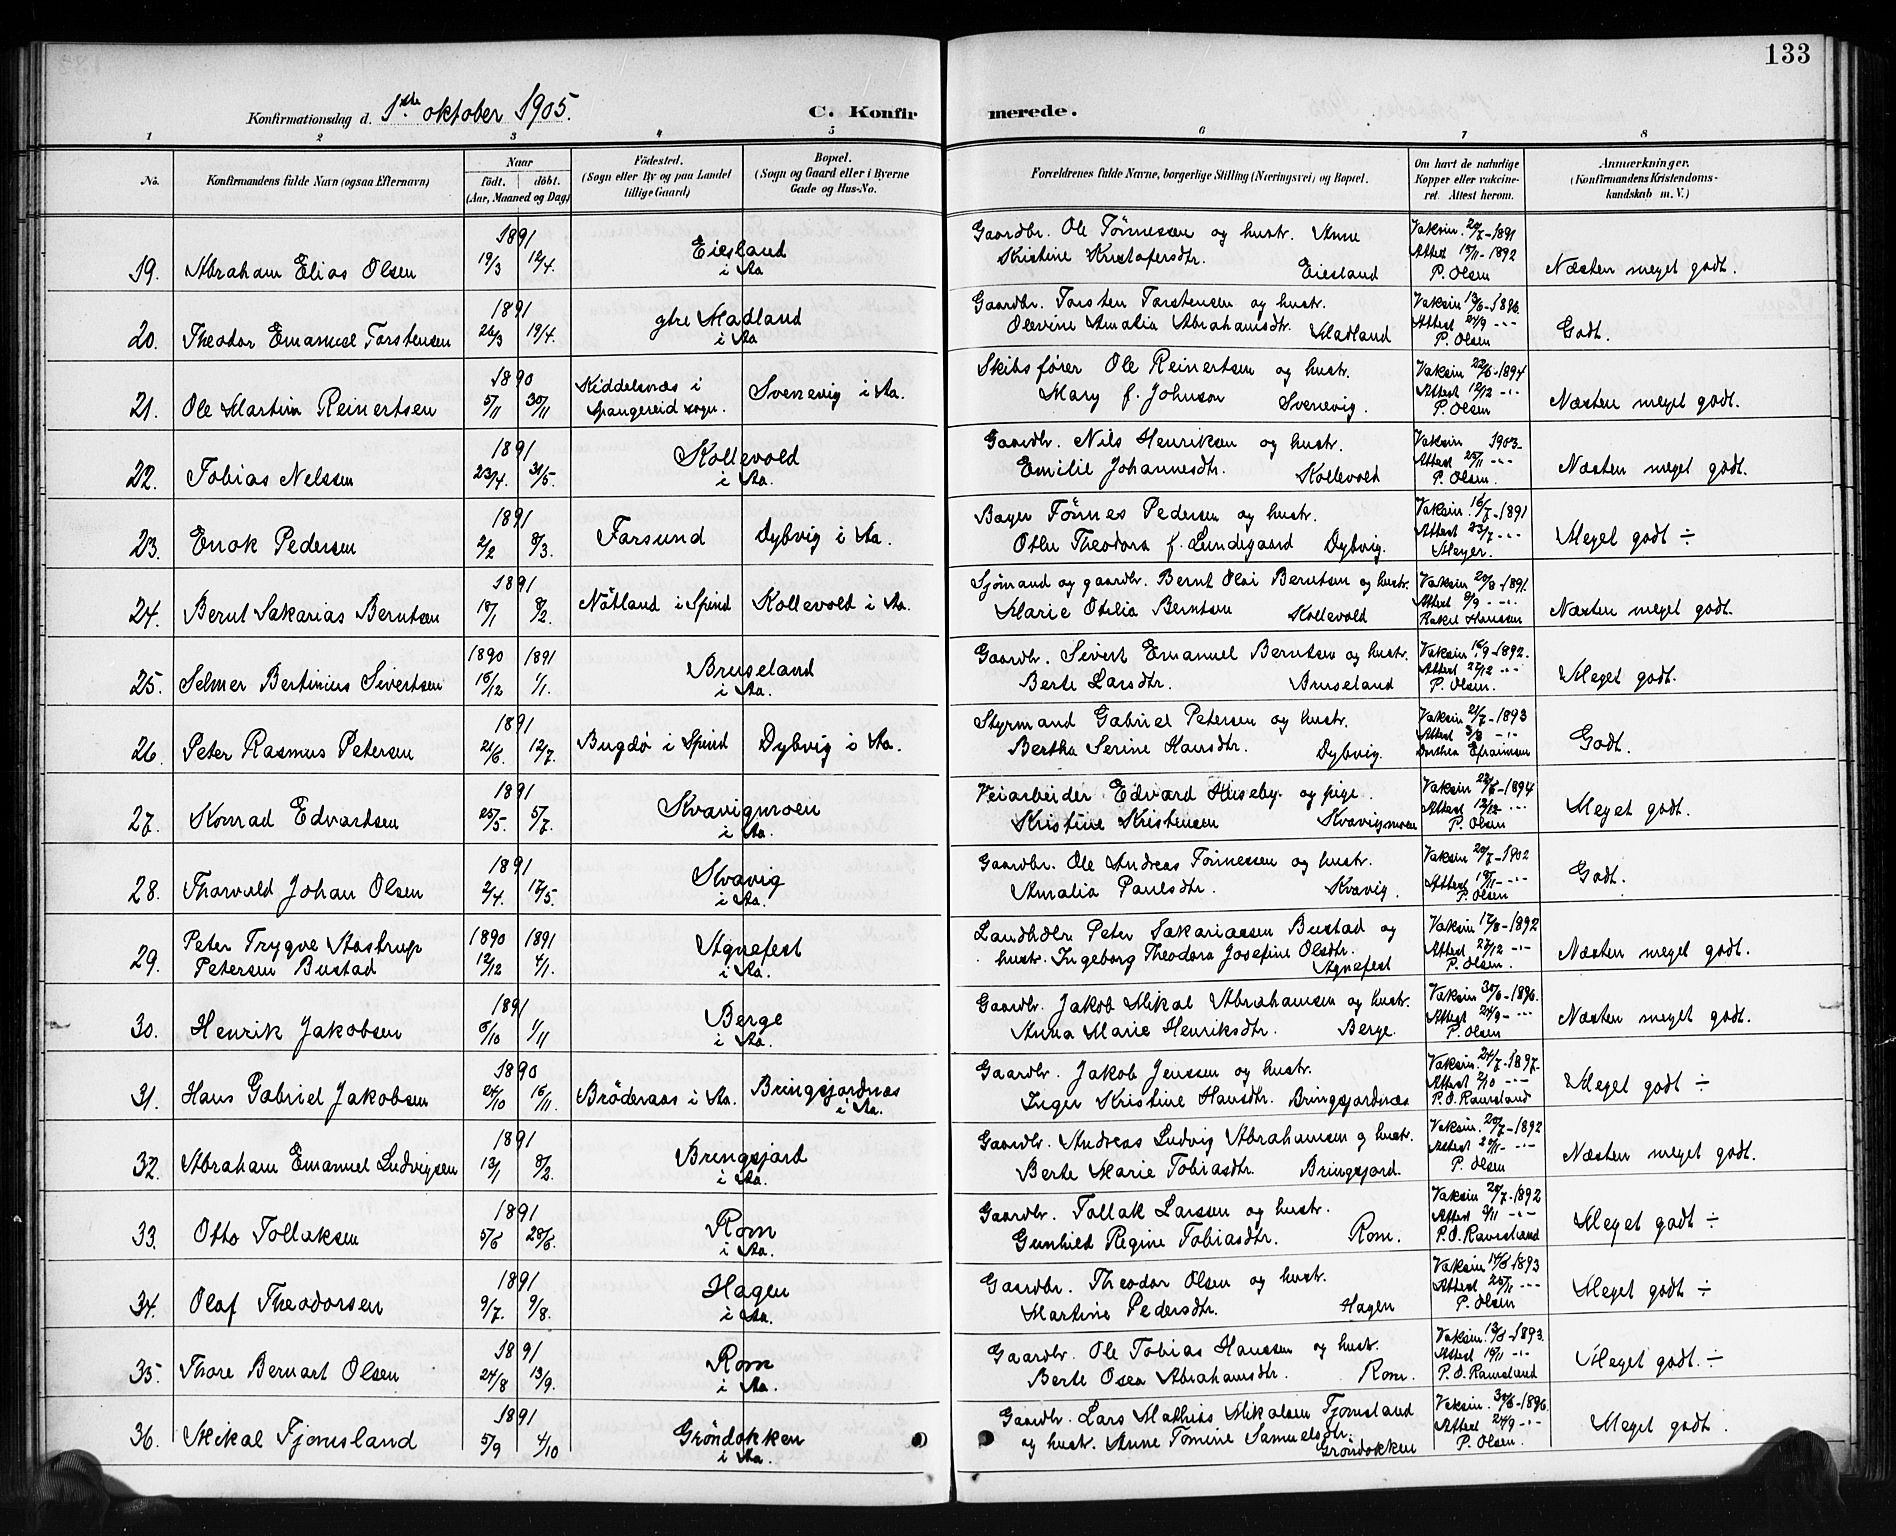 133
Konfirmationsdag d. 1ste oktober 1905.
C. Konfirmerede.
1 2 3 4 5 6 7 8
No.
Konfirmandens fulde Navn (ogsaa Efternavn)
Naar
født. døbt.
(Aar, Maaned og Dag)
Fødested.
(Sogn eller By og paa Landet
tillige Gaard)
Bopæl.
(Sogn og Gaard eller i Byerne
Gade og Hus-No.
Forældrenes fulde Navne, borgerlige Stilling (Næringsvei) og Bopæl.
Om havt de naturlige
Kopper eller vakcine-
ret. Attest herom.
Anmærkninger.
(Konfirmandens Kristendoms-
kundskab m. V.)
1891
19. Abraham Elias Olsen 19/3 12/4. Eiesland
i Aa
Gaardbr. Ole Tønnessen og hustr. Anne
Kristine Kristofersdtr. Eiesland
Vaksin. 20/7-1891
Attest 15/11-1892
P. Olsen
Næsten meget godt.
1891
20. Theodor Emanuel Torstensen 26/3 19/4. ytre Madland
i Aa
Gaardbr. Torsten Torstensen og hustr.
Olevine Amalia Abrahamsdtr. Madland
Vaksin 13/6-1896.
Attest 24/9 -"-
P. Olsen
Godt.
1890
21. Ole Martin Reinertsen 5/11 30/11 Kiddelsnæs i
Spangereid sogn. Svenevig i Aa.
Skibsfører Ole Reinertsen og hustr.
Mary f. Johnson Svenevig.
Vaksin 22/6-1894
Attest 12/12 -"-
P. Olsen
Næsten meget godt.
1891
22. Tobias Nelsen 23/4. 31/5. Kollevold
i Aa.
Gaardbr. Nils Henriksen og hustr.
Emilie Johannesdtr. Kollevold
Vaksin 1903.
Attest 25/11 -"-
P. Olsen.
Næsten meget godt.
1891
23. Enok Pedersen 2/2 8/3. Farsund Dybvig i Aa.
Bager Tønnes Pedersen og hustr.
Othe Theodora f. Lundegaard Dybvig.
Vaksin 16/7-1891
Attest 23/7 -"-
Meyer.
Meget godt ÷
1891
24. Bernt Sakarias Berntsen 18/1 8/2. Nøtland i Spind Kollevold i Aa.
Sjømand og gaardbr. Bernt Olai Berntsen og hustr.
Marie Otelia Berntsen Kollevold
Vaksin 20/8-1891.
Attest 8/9 -"-
Rakel Hanssen
Næsten meget godt.
1890 1891
25. Selmer Bertinius Sivertsen 16/12 1/1. Bruseland
i Aa.
Gaardbr. Sivert Emanuel Berntsen og hustr.
Berte Larsdtr. Bruseland
Vaksin. 16/9-1892.
Attest 22/12 -"-
P. Olsen.
Meget godt.
1891
26. Peter Rasmus Petersen 21/6. 12/7. Bugdø i Spind Dybvig i Aa.
Styrmand Gabriel Petersen og hustr.
Bertha Serine Hansdtr. Dybvig.
Vaksin 21/7-1893
Attest 3/8 -"-
Dorthea Efraimsen
Godt.
1891
27. Konrad Edvardsen 25/5. 5/7. Kvavigmoen
i Aa.
Veiarbeider Edvard Huseby og pige
Kristine Kristensen Kvavigmoen
Vaksin 22/6-1894
Attest 12/12 -"-
P. Olsen
Meget godt.
1891
28. Thorvald Johan Olsen 2/4. 17/5. Kvavig
i Aa.
Gaardbr. Ole Andreas Tønnessen og hustr.
Amalia Paulsdtr. Kvavig.
Vaksin 20/7-1902
Attest 18/11 -"-
P. Olsen
Godt.
1890 1891
29. Peter Trygve Aastrup
Petersen Bustad 12/12 4/1. Agnefest
i Aa.
Landhdlr. Peter Sakariassen Bustad og
hustr. Ingeborg Theodora Josefine Olsdtr.
Agnefest
Vaksin 17/8-1892
Attest 22/12 -"-
P. Olsen.
Næsten meget godt.
1891
30. Henrik Jakobsen 6/10 1/11 Berge
i Aa.
Gaardbr. Jakob Mikal Abrahamsen og hustr.
Anna Marie Henriksdtr. Berge.
Vaksin 30/6-1896.
Attest 24/9 -"-
P. Olsen
Næsten meget godt.
1890
31. Hans Gabriel Jakobsen 24/10 16/11. Brøderaas i Aa. Bringsjordnæs
i Aa.
Gaardbr. Jakob Jenssen og hustr.
Inger Kristine Hansdtr. Bringsjordnæs
Vaksin. 24/7-1897.
Attest 2/10 -"-
P. O. Ramsland
Meget godt ÷
1891
32. Abraham Emanuel Ludvigsen 13/1 8/2. Bringsjord
i Aa.
Gaardbr. Andreas Ludvig Abrahamsen og hustr.
Berte Marie Tobiasdtr. Bringsjord.
Vaksin. 20/7-1892
Attest 21/11 -"-
P. Olsen
Næsten meget godt.
1891
33. Otto Tollaksen 5/6 28/6. Rom
i Aa.
Gaardbr. Tollak Larsen og hustr.
Gunhild Regine Tobiasdtr. Rom.
Vaksin 20/7-1892
Attest 9/11 -"-
P. O. Ramsland
Meget godt ÷
1891
34. Olaf Theodorsen 9/7. 9/8. Hagen
i Aa.
Gaardbr. Theodor Olsen og hustr.
Martine Pedersdtr. Hagen
Vaksin 14/6-1893
Attest 25/11 -"-
P. Olsen
Meget godt ÷
1891
35. Thore Bernart Olsen 24/8 13/9. Rom
i Aa.
Gaardbr. Ole Tobias Hanssen og hustr.
Berte Osea Abrahamsdtr. Rom.
Vaksin. 13/6-1893.
Attest 19/11 -"-
P. O. Ramsland
Meget godt. ÷
1891
36. Mikal Fjomsland 5/9 4/10 Grøndokken
i Aa.
Gaardbr. Lars Mathias Mikalsen Fjomsland
og hustr. Anne Tomine Samuelsdtr.
Grøndokken
Vaksin. 30/6-1896.
Attest 24/9 -"-
P. Olsen.
Meget godt.